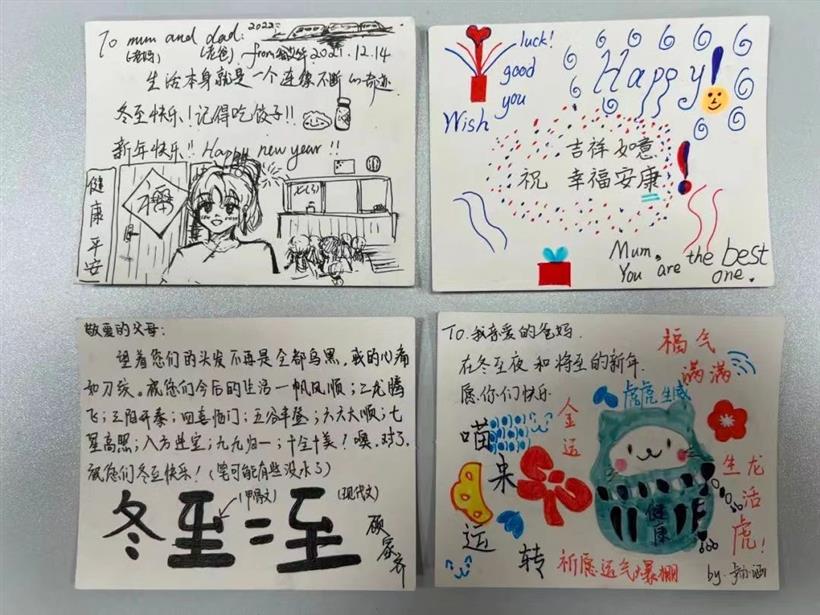 To mum and dad: 2022:
(老妈) (老爸) from 2021.12.14
生活本身就是一个连绵不断的奇迹.
冬至快乐!记得吃饺子!!
新年快乐!! Happy new year!!
健康平安
福
luck!
good
you
Wish
Happy!
吉祥如意
祝 幸福安康!
Mum,
You are the best
one.
敬爱的父母:
望着您们的头发不再是全部乌黑,我的心痛
如刀绞。祝您们今后的生活一帆风顺;二龙腾
飞;三阳开泰;四喜临门;五谷丰登;六六大顺;七
星高照;八方进宝;九九归一;十全十美!噢,对了,
祝您们冬至快乐!(笔可能有些没水了)
(甲骨文) (现代文)
冬至=至
To. 我亲爱的爸妈.
在冬至夜和将至的新年
愿你们快乐
福气
满满
虎虎生威
金运
喵
呆
运
转
健康
生龙
活
虎!
祈愿运气爆棚
by.